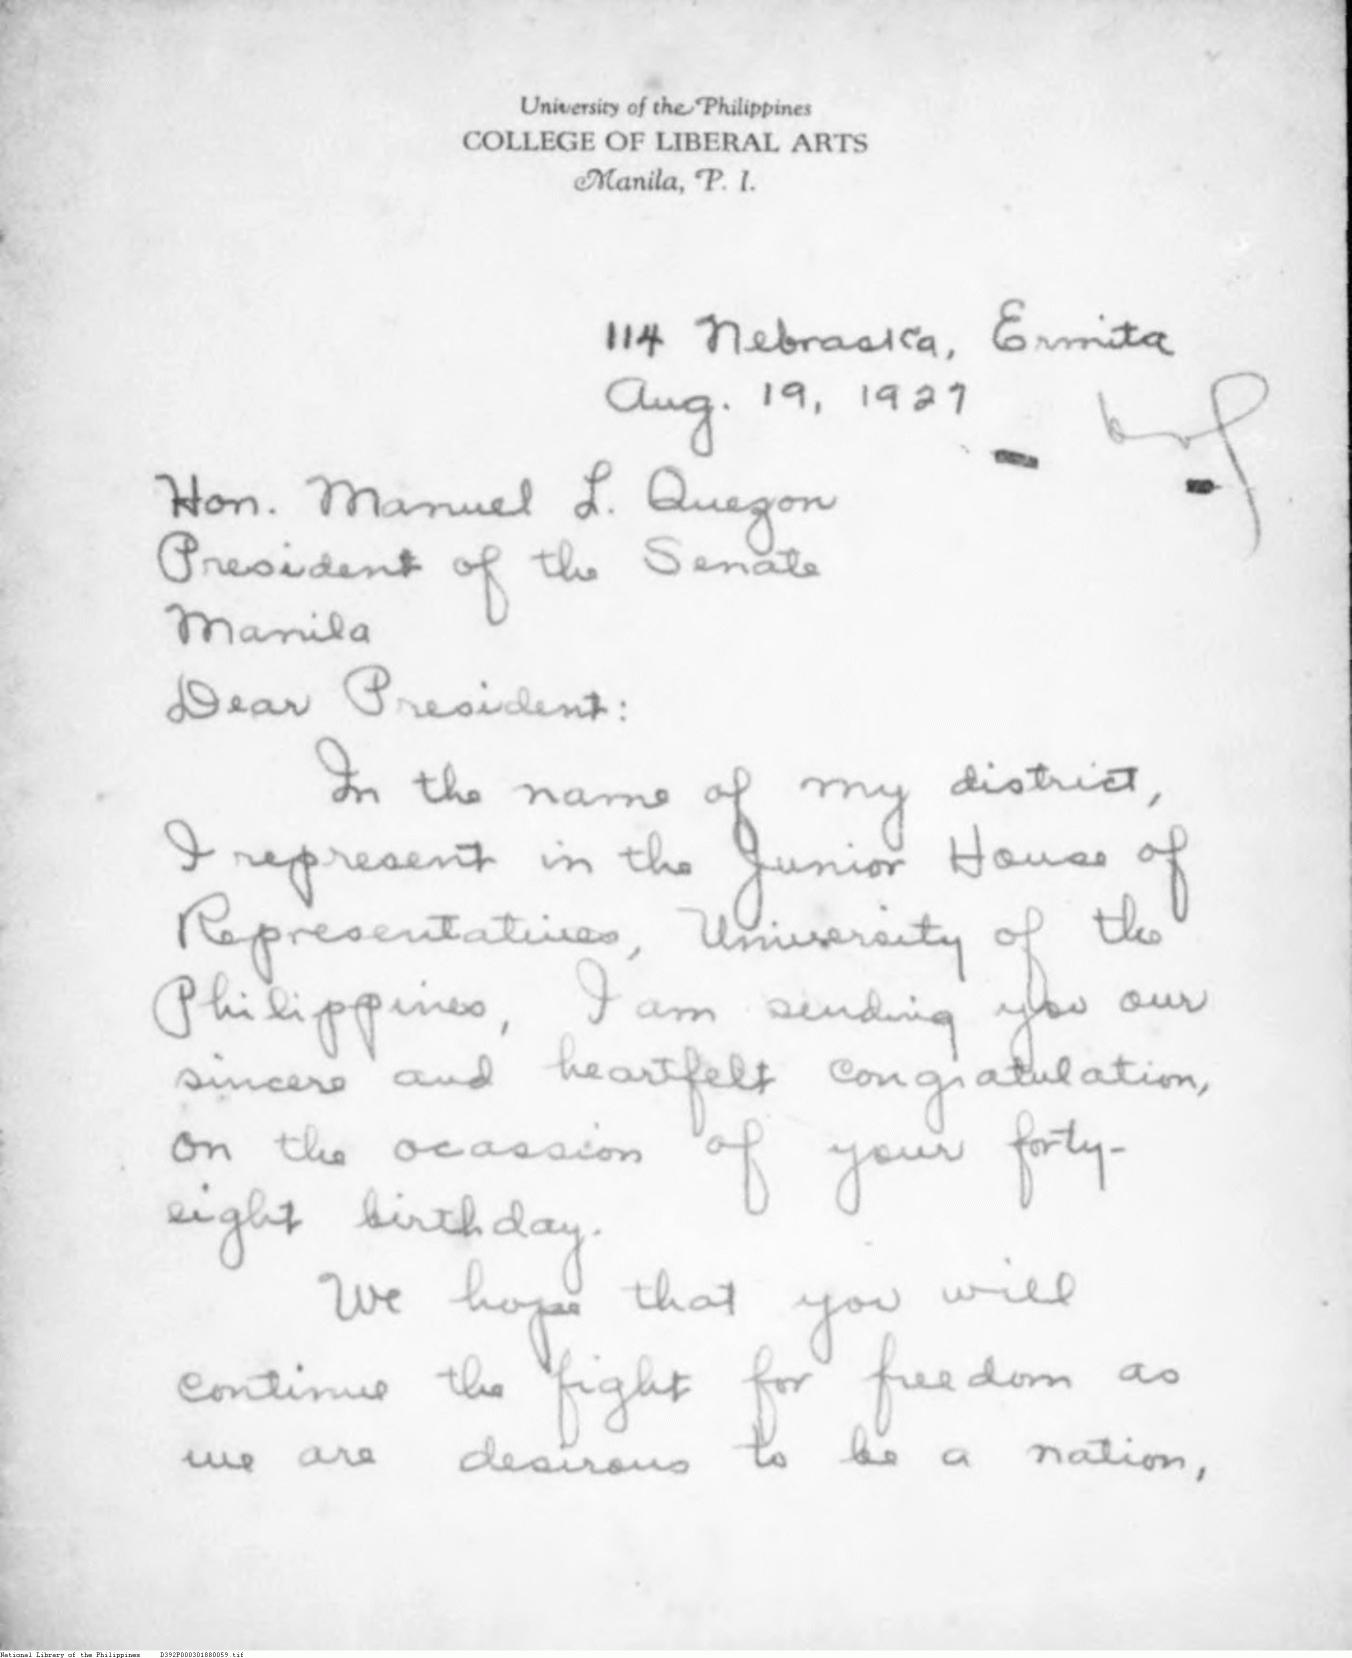 University of the Philippines
COLLEGE OF LIBERAL ARTS
Manila, P. I.
114 Nebraska, Ermita
Aug. 19, 1927
Hon. Manuel L. Quezon
President of the Senate
Manila
Dear President:
In the name of my district,
I represent in the Junior House of
Representatives, University of the
Philippines, I am sending you our
sincere and heartfelt congratulation,
on the ocassion of your forty-
eight birthday.
We hope that you will
continue the fight for freedom as
we are desirous to be a nation,
National Library of the Philippines D392P000301880059.tif